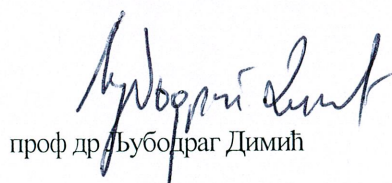 Љубодраг Димић
проф др Љубодраг Димић